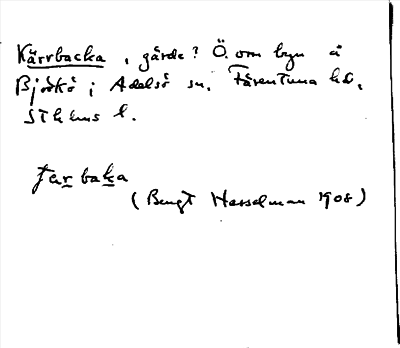 Kärrbacka, gärde? Ö. om byn å
Björkö i Adelsö sn. Färentuna hd,
Sthlms l.
ꞔarbaka
(Bengt Hesselman 1908)